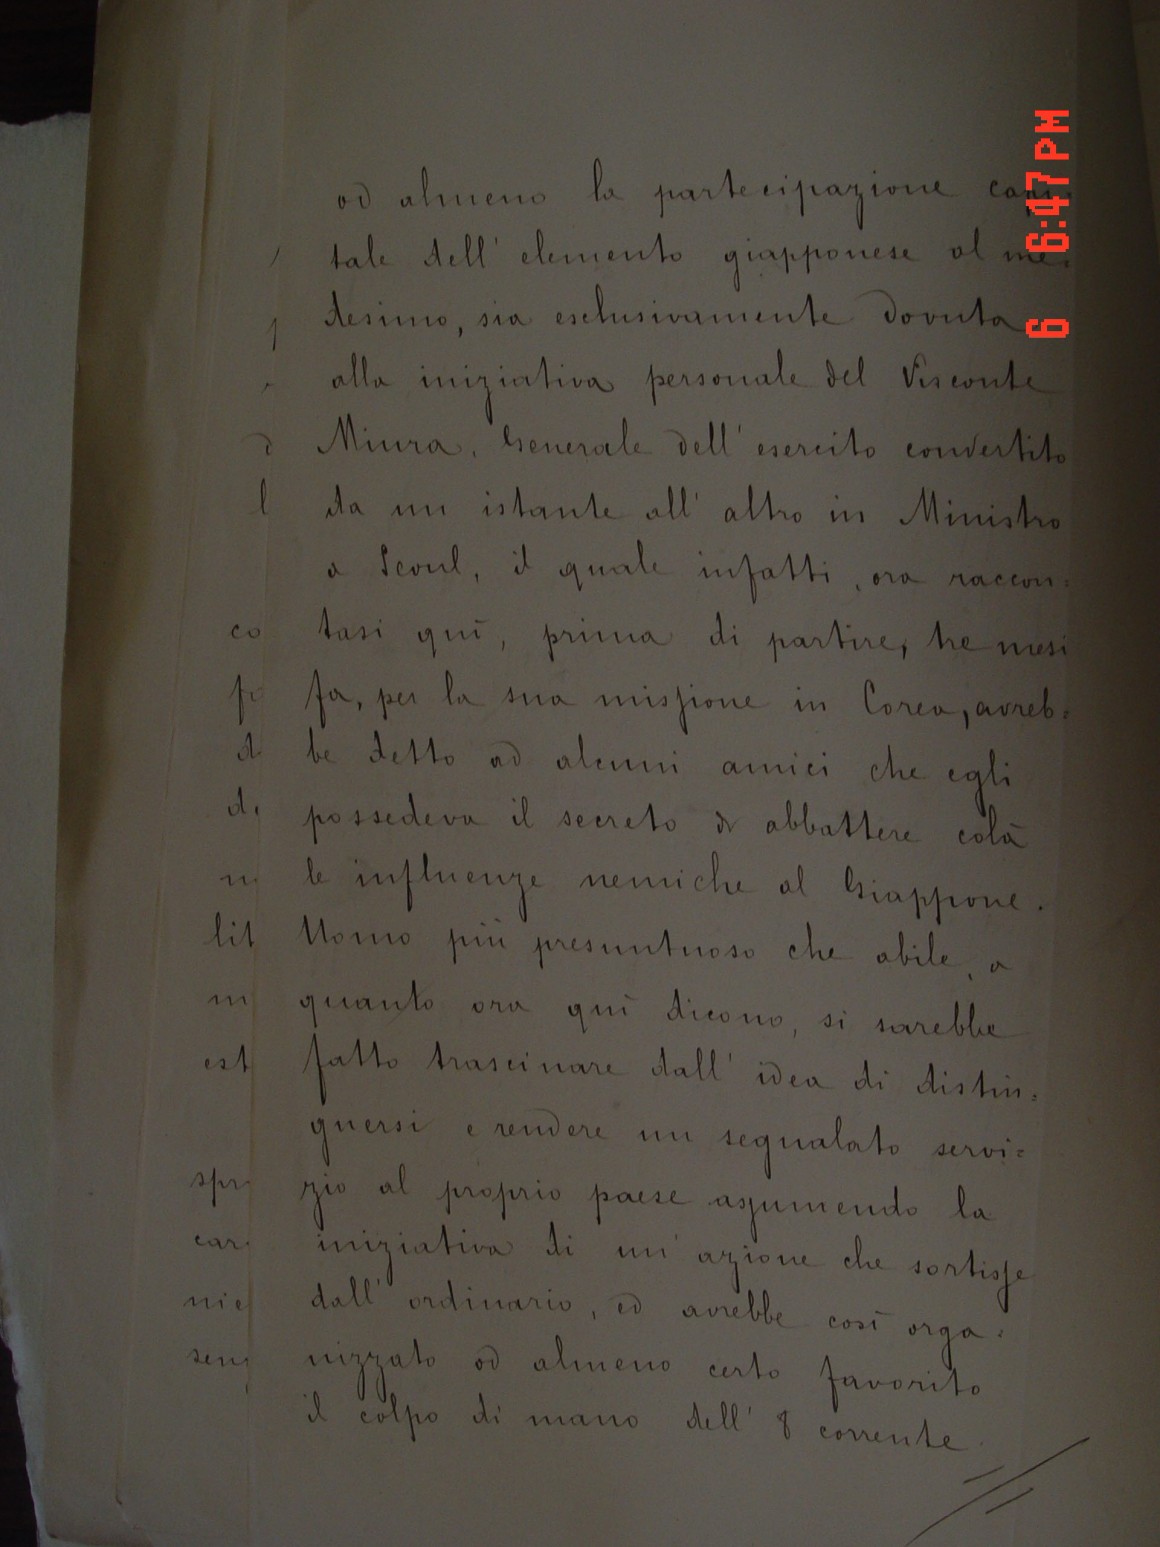 od almeno la partecipazione capi=
tale dell' elemento giapponese al me=
desimo, sia esclusivamente dovuta
alla iniziativa personale del Visconte
Miura, Generale dell' esercito convertito
da un istante all' altro in Ministro
a Seoul, il quale infatti, ora raccon=
tasi quì, prima di partire, tre mesi
fa, per la sua missione in Corea, avreb=
be detto ad alcuni amici che egli
possedeva il secreto di abbattere colà
le influenze nemiche al Giappone.
Uomo più presuntuoso che abile, a
quanto ora quì dicono, si sarebbe
fatto trascinare dall' idea di distin=
guersi e rendere un segnalato servi=
zio al proprio paese assumendo la
iniziativa di un' azione che sortisse
dall' ordinario, ed avrebbe così orga=
nizzato od almeno certo favorito
il colpo di mano dell' 8 corrente.
6 6:47 PM
co
d
de
lit
m
est
spr
car
nie